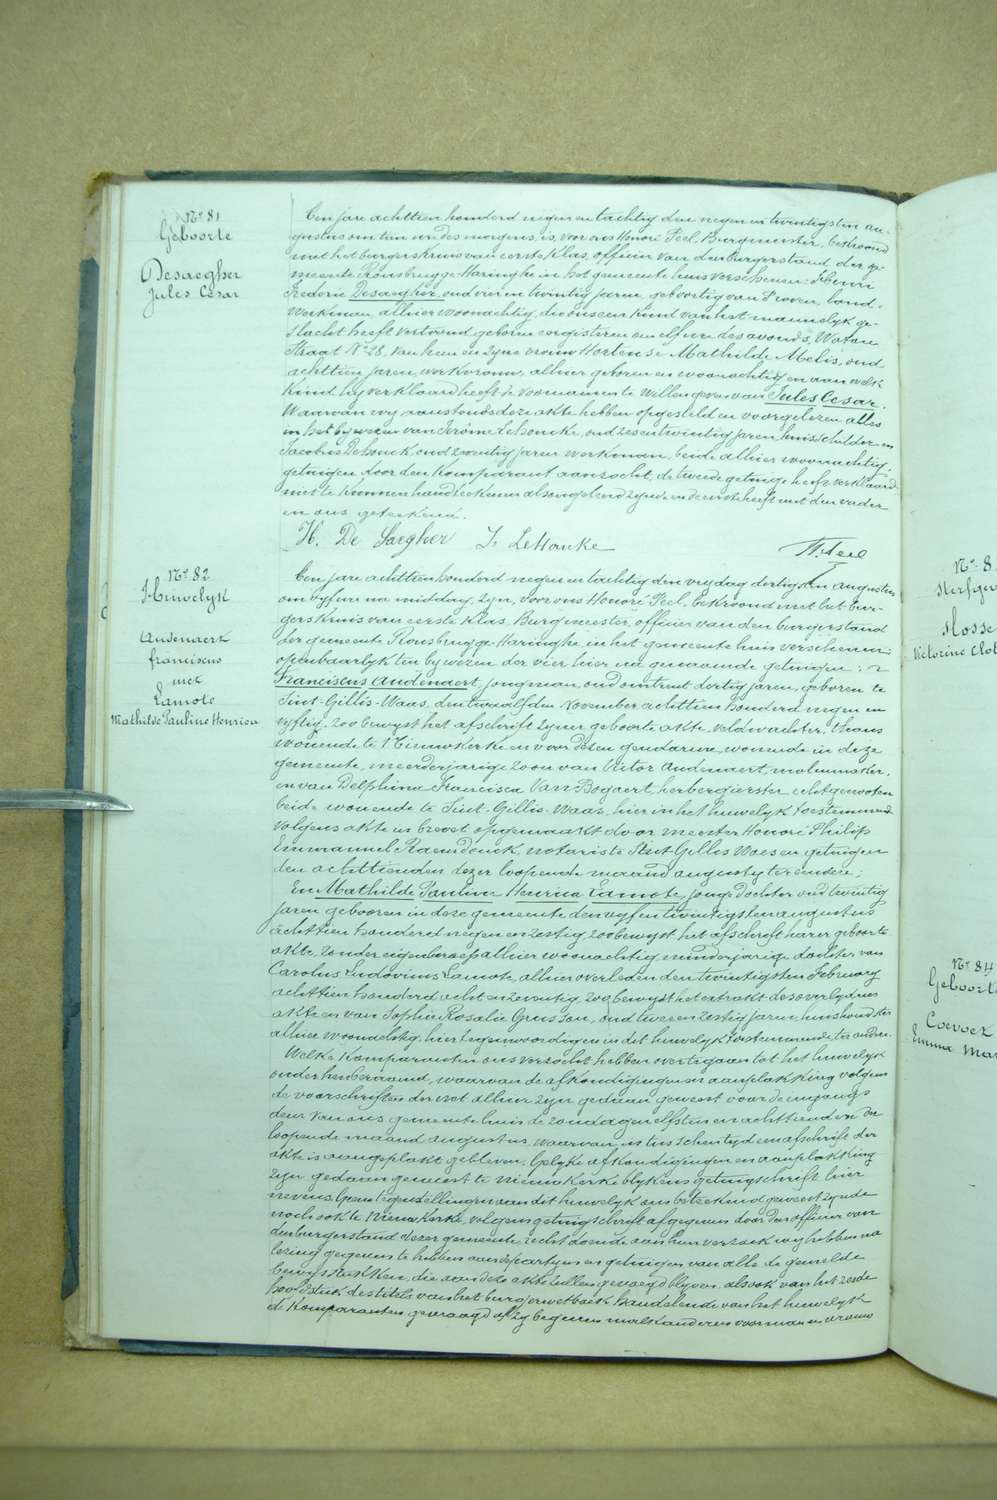 N° 81
Geboorte
Desaegher
Jules Cesar
Een jare achttien honderd negen en tachtig den negen en twintigsten au-
gustus om tien ure des morgens, is, voor ons Honoré Feel, Burgmeester, bekroond
met het burgerskruis van eerste klas, officier van den burgerstand der ge-
meente Rousbrugge-Haringhe in het gemeente huis verschenen: Henri
Frederic Desaegher, oud vier en twintig jaren, geboortig van Proven, land-
werkman, alhier woonachtig, die ons een kind van het mannelijk ge-
slacht heeft vertoond, geboren eergisteren om elf ure des avonds, Waton
Straat N° 28, van hem en zyne vrouw Hortense Mathilde Melis, oud
achttien jaren, werkvrouw, alhier geboren en woonachtig en aan welk
kind hy verklaard heeft de voornamen te willen geven van Jules Cesar.
Waarvan wy aanstonds deze akte hebben opgesteld en voorgelezen, alles
in het bywezen van Jerôme Lehoucke, oud zes en twintig jaren, huisschilder en
Jacobus Dehouck, oud zeventig jaren werkman, beide alhier woonachtig,
getuigen door den komparant aanzocht, de tweede getuige heeft verklaard
niet te kunnen handteekenen als ongeleerd zynde en de eerste heeft met den vader
en ons geteekend.
H. De Saegher J. Lehoucke H. Feel
N° 82
Huwelyk
Audenaert
franciscus
met
Lamote
Mathilde Pauline Henrica
Een jare achttien honderd negen en tachtig den vrydag dertigsten augustus
om vyf ure na middag, zyn, voor ons Honoré Feel, bekroond met het bur-
gerskruis van eerste klas, Burgmeester, officier van den burgerstand
der gemeente Rousbrugge-Haringhe in het gemeente huis verschenen:
openbaarlyk ten bywezen der vier hier na genoemde getuigen:
Franciscus Audenaert, jongman, oud omtrent dertig jaren, geboren te
Sint-Gillis-Waas, den twaalfden November achttien honderd negen en
vyftig, zoo bewyst het afschrift zyner geboorte akte, veldwachter, thans
wonende te Nieuwkerke en voor dezen gendarme, wonende in deze
gemeente, meerderjarige zoon van Victor Audenaert, molenmaker,
en van Delphina Francisca Van Bogaert, herbergierster, echtgenooten
beide wonende te Sint-Gillis-Waas, hier in het huwelyk toestemmend
volgens akte in brevet opgemaakt door meester Honoré Philip
Emmanuel Raemdonck, notaris te Sint Gillis Waes en getuigen
den achttienden dezer loopende maand augusty ter eendere;
En Mathilde Pauline Henrica Lamote, jonge dochter oud twintig
jaren geboren in deze gemeente den vyf en twintigsten augustus
achttien honderd negen en zestig, zoo bewyst het afschrift harer geboorte
akte, zonder eigen beroep alhier woonachtig, minderjarige dochter van
Carolus Ludovicus Lamote, alhier overleden den twintigsten February
achttien honderd acht en zeventig, zoo bewyst het extrakt des overlydens
akte en van Sophie Rosalie Grusson, oud twee en zestig jaren, huishoudster
alhier woonachtig, hier tegenwoordig en in dit huwelyk toestemmende ter andere.
Welke komparanten ons verzocht hebben overtegaan tot het huwelyk
onder hen beraamd, waarvan de afkondigingen en aanplakking volgens
de voorschriften der wet alhier zyn gedaan geweest voor de ingangs
deur van ons gemeente huis de zondagen elfsten en achttienden der
loopende maand augustus, waarvan in tusschen tyd een afschrift der
akte is aangeplakt gebleven. Gelyke afkondigingen en aanplakking
zyn gedaan geweest te Nieuwkerke blykens getuigschrift hier
nevens. Geene tegenstellingen aan dit huwelyk ons beteekend geweest zynde
noch ook te Nieuwkerke, volgens getuigschrift afgegeven door den officier van
den burgerstand dezer gemeente, recht doende aan hun verzoek wy hebben na
lezing gegeven te hebben aan de partyen en getuigen van alle de gemelde
bewysstukken, die aan deze akte zullen gevoegd blyven alsook van het zesde
hoofdstuk des titels van het burgerwetboek handelende van het huwelyk
de komparanten gevraagd of zy begeeren malkanderen voor man en vrouw
N° 8
Sterfge
N° 84
Geboorte
Coevoet
Emma Mar